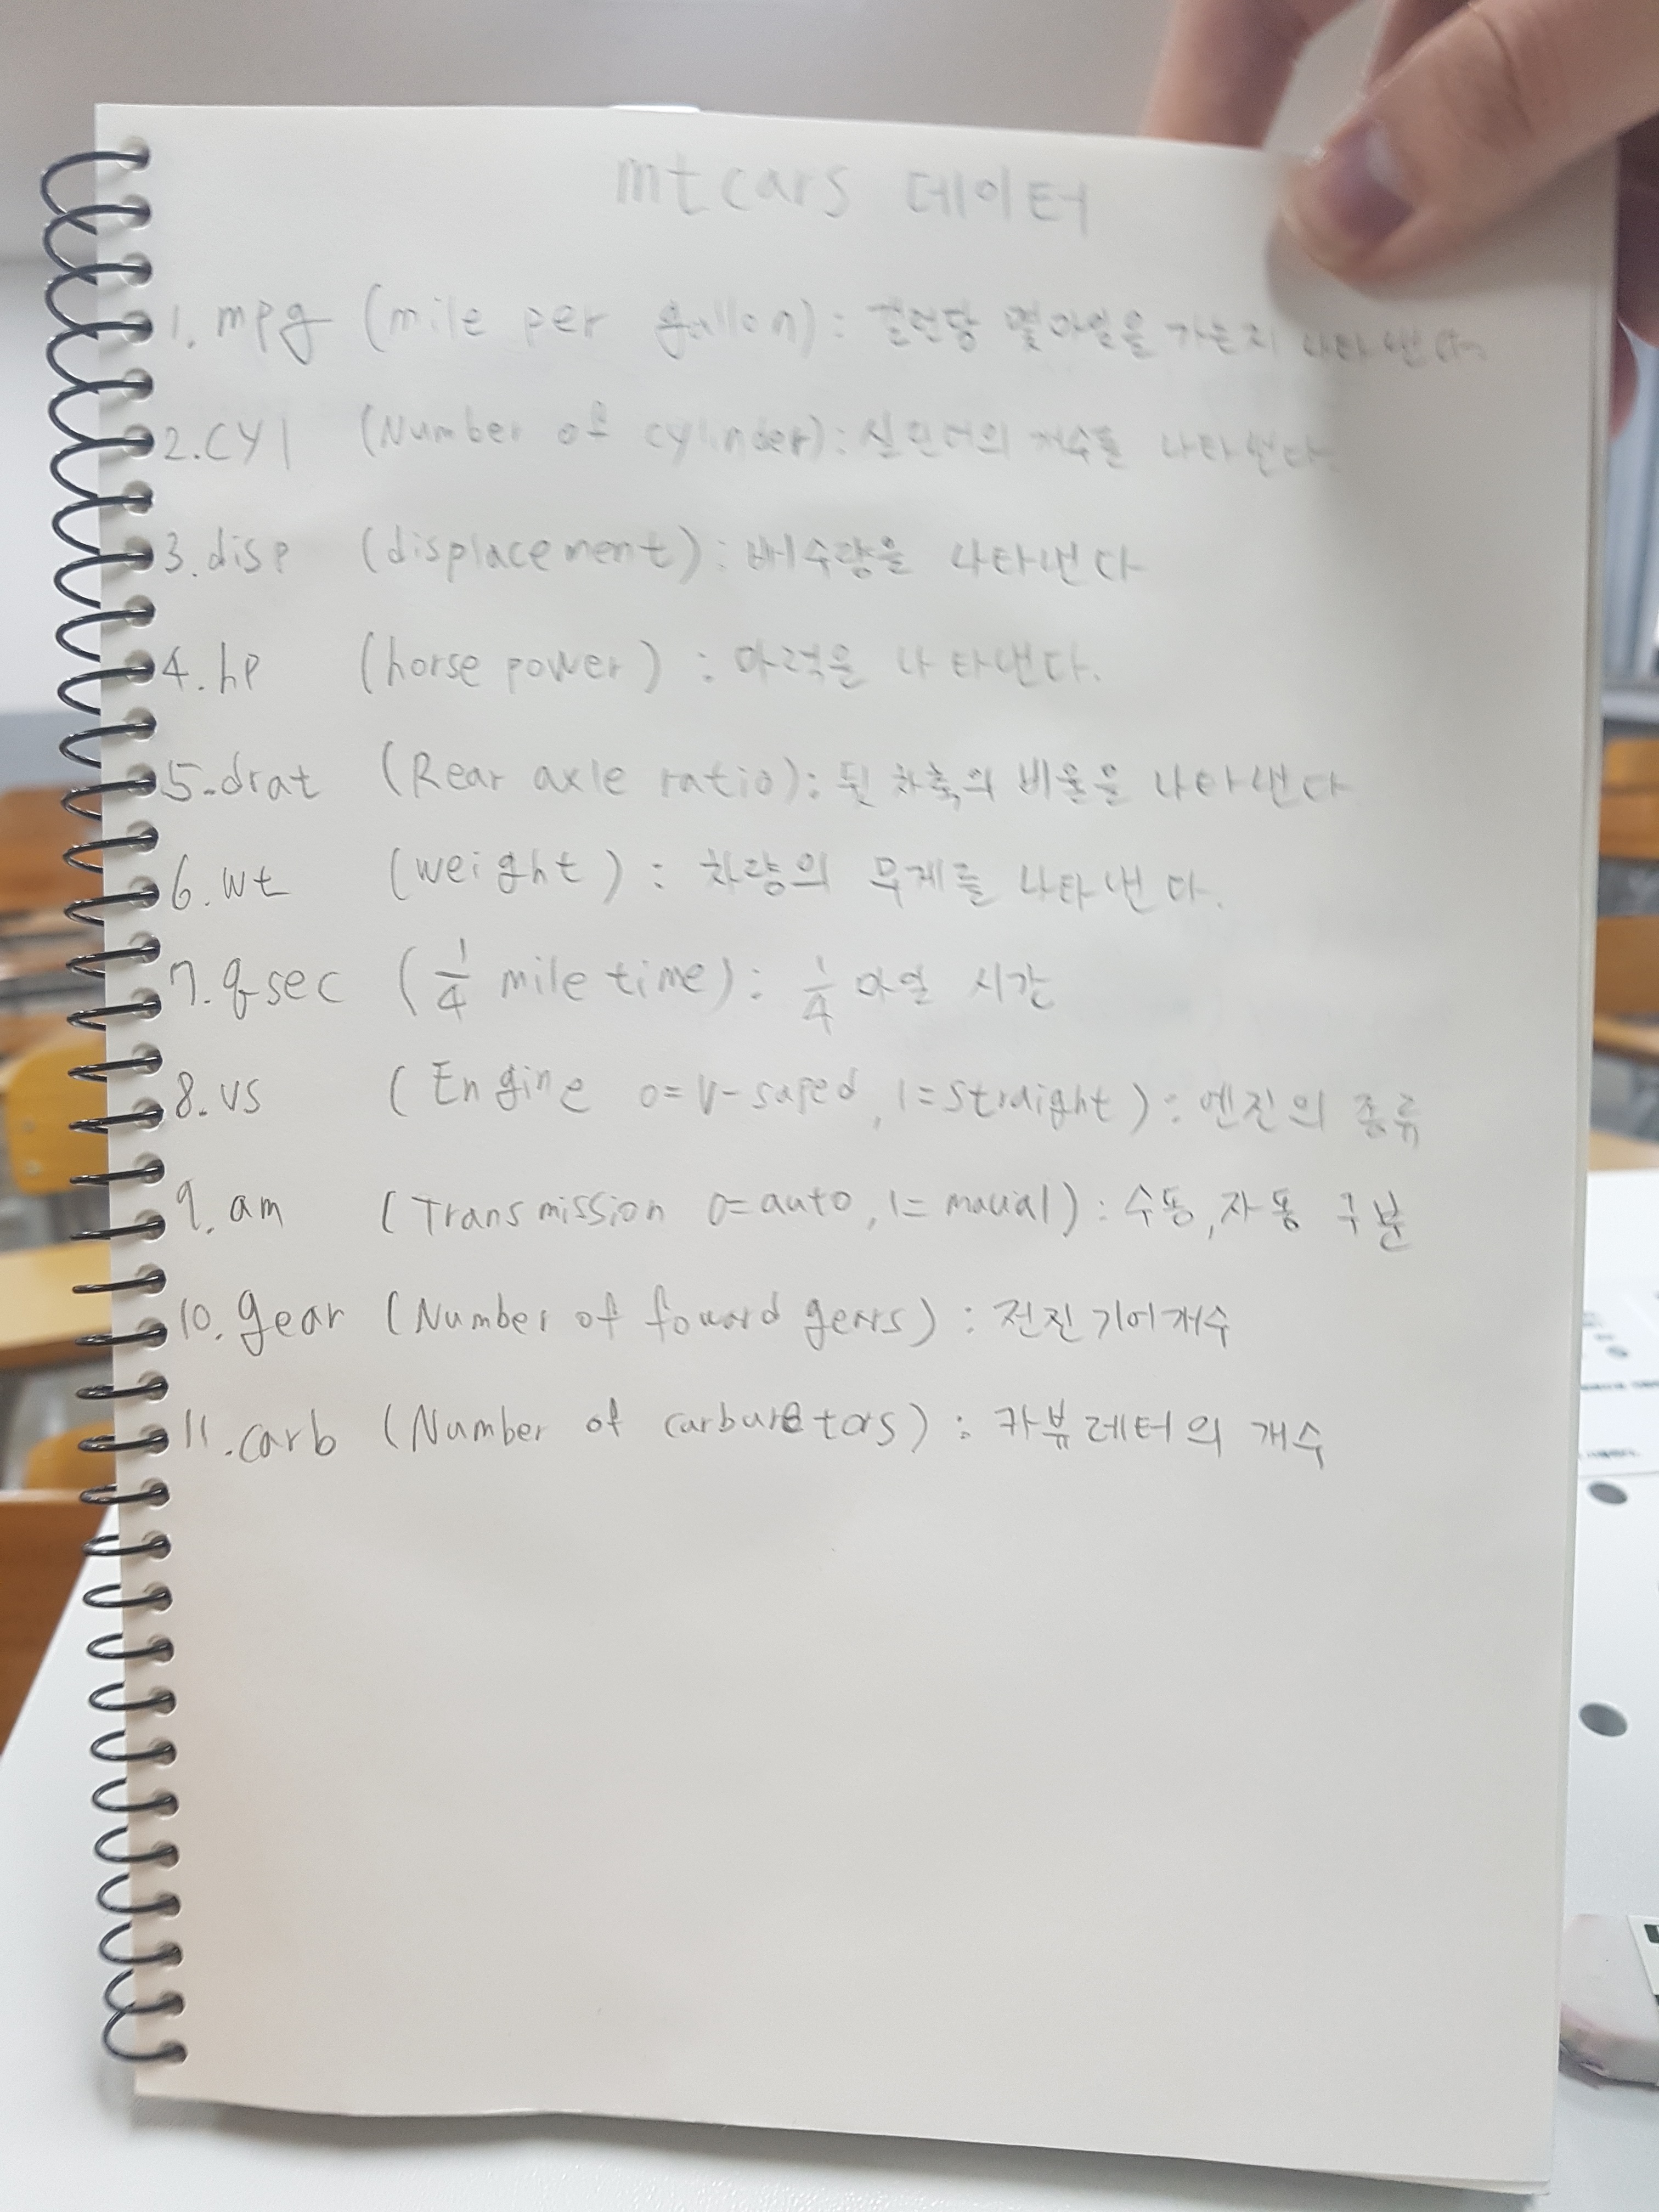 mtcars 데이터
1. mpg (mile per gallon) : 갤런당 몇마일을 가는지 나타낸다.
2. cyl (Number of cylinder) : 실린더의 개수를 나타낸다.
3. disp (displacement) : 배수량을 나타낸다
4. hp (horse power) : 마력을 나타낸다.
5. drat (Rear axle ratio) : 뒷 차축의 비율을 나타낸다
6. wt (weight) : 차량의 무게를 나타낸다.
7. qsec (1/4 mile time) : 1/4 마일 시간
8. vs (Engine 0=V-saped, 1=straight) : 엔진의 종류
9. am (Transmission 0=auto, 1=maual) : 수동, 자동 구분
10. gear (Number of foward gears) : 전진기어개수
11. carb (Number of carburetors) : 카뷰레터의 개수